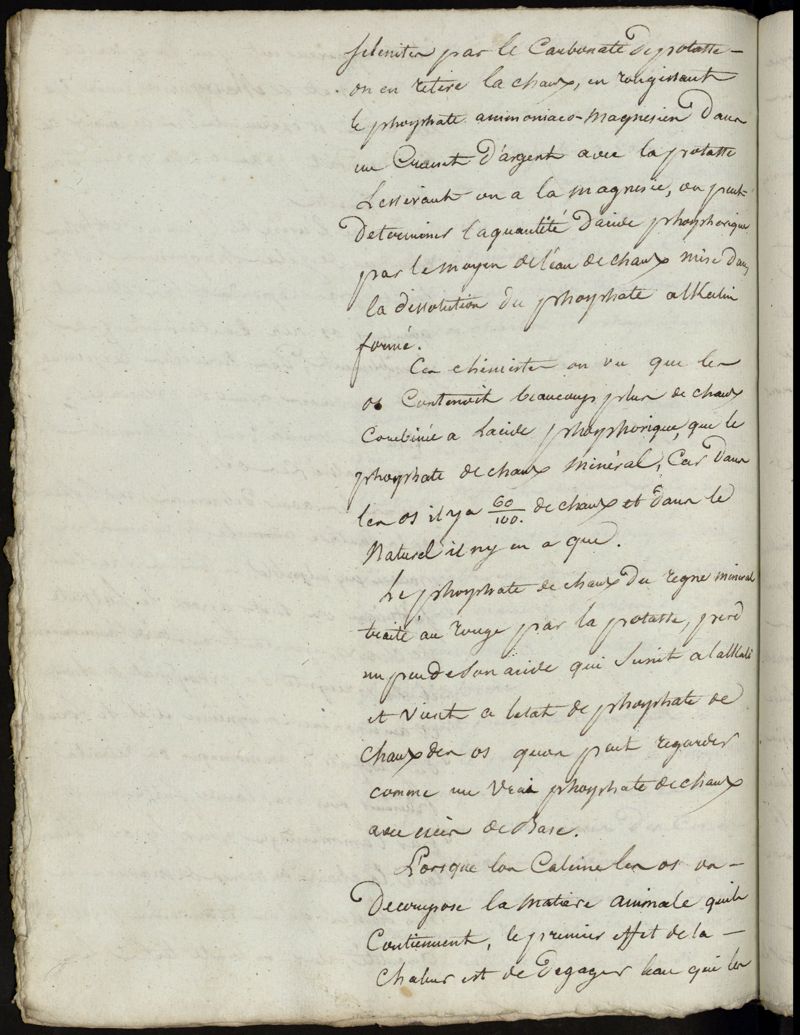 seleniter par le Carbonate de potasse –
on en retire la chaux, en rougissant
le phosphate ammoniaco-magnesien dans
un Creuset d'argent avec la potasse
Lessivant on a la magnesie, on peut
Determiner la quantité d'acide phosphorique
par le moyen de l'eau de chaux mise dans
la dissolution du phosphate alkalin
formé.
Ces chimistes on vu que les
os Contenoit beaucoups plus de chaux
Combinée a Lacide phosphorique, que le
phosphate de chaux minéral, Car dans
les os il y a 60/100. de chaux et dans le
Naturel il n'y en a que .
Le phosphate de chaux du regne mineral
traité au rouge par la potasse, perd
un peu de son acide qui s'unit a lalkali
et vient a letat de phosphate de
Chaux des os quon peut regarder
comme un Vrai phosphate de chaux
avec de Base.
Lorsque lon Calcine les os on –
Decompose la matiere animale quils
Contiennent, le premier effet de la –
Chaleur est de degager leau qui les